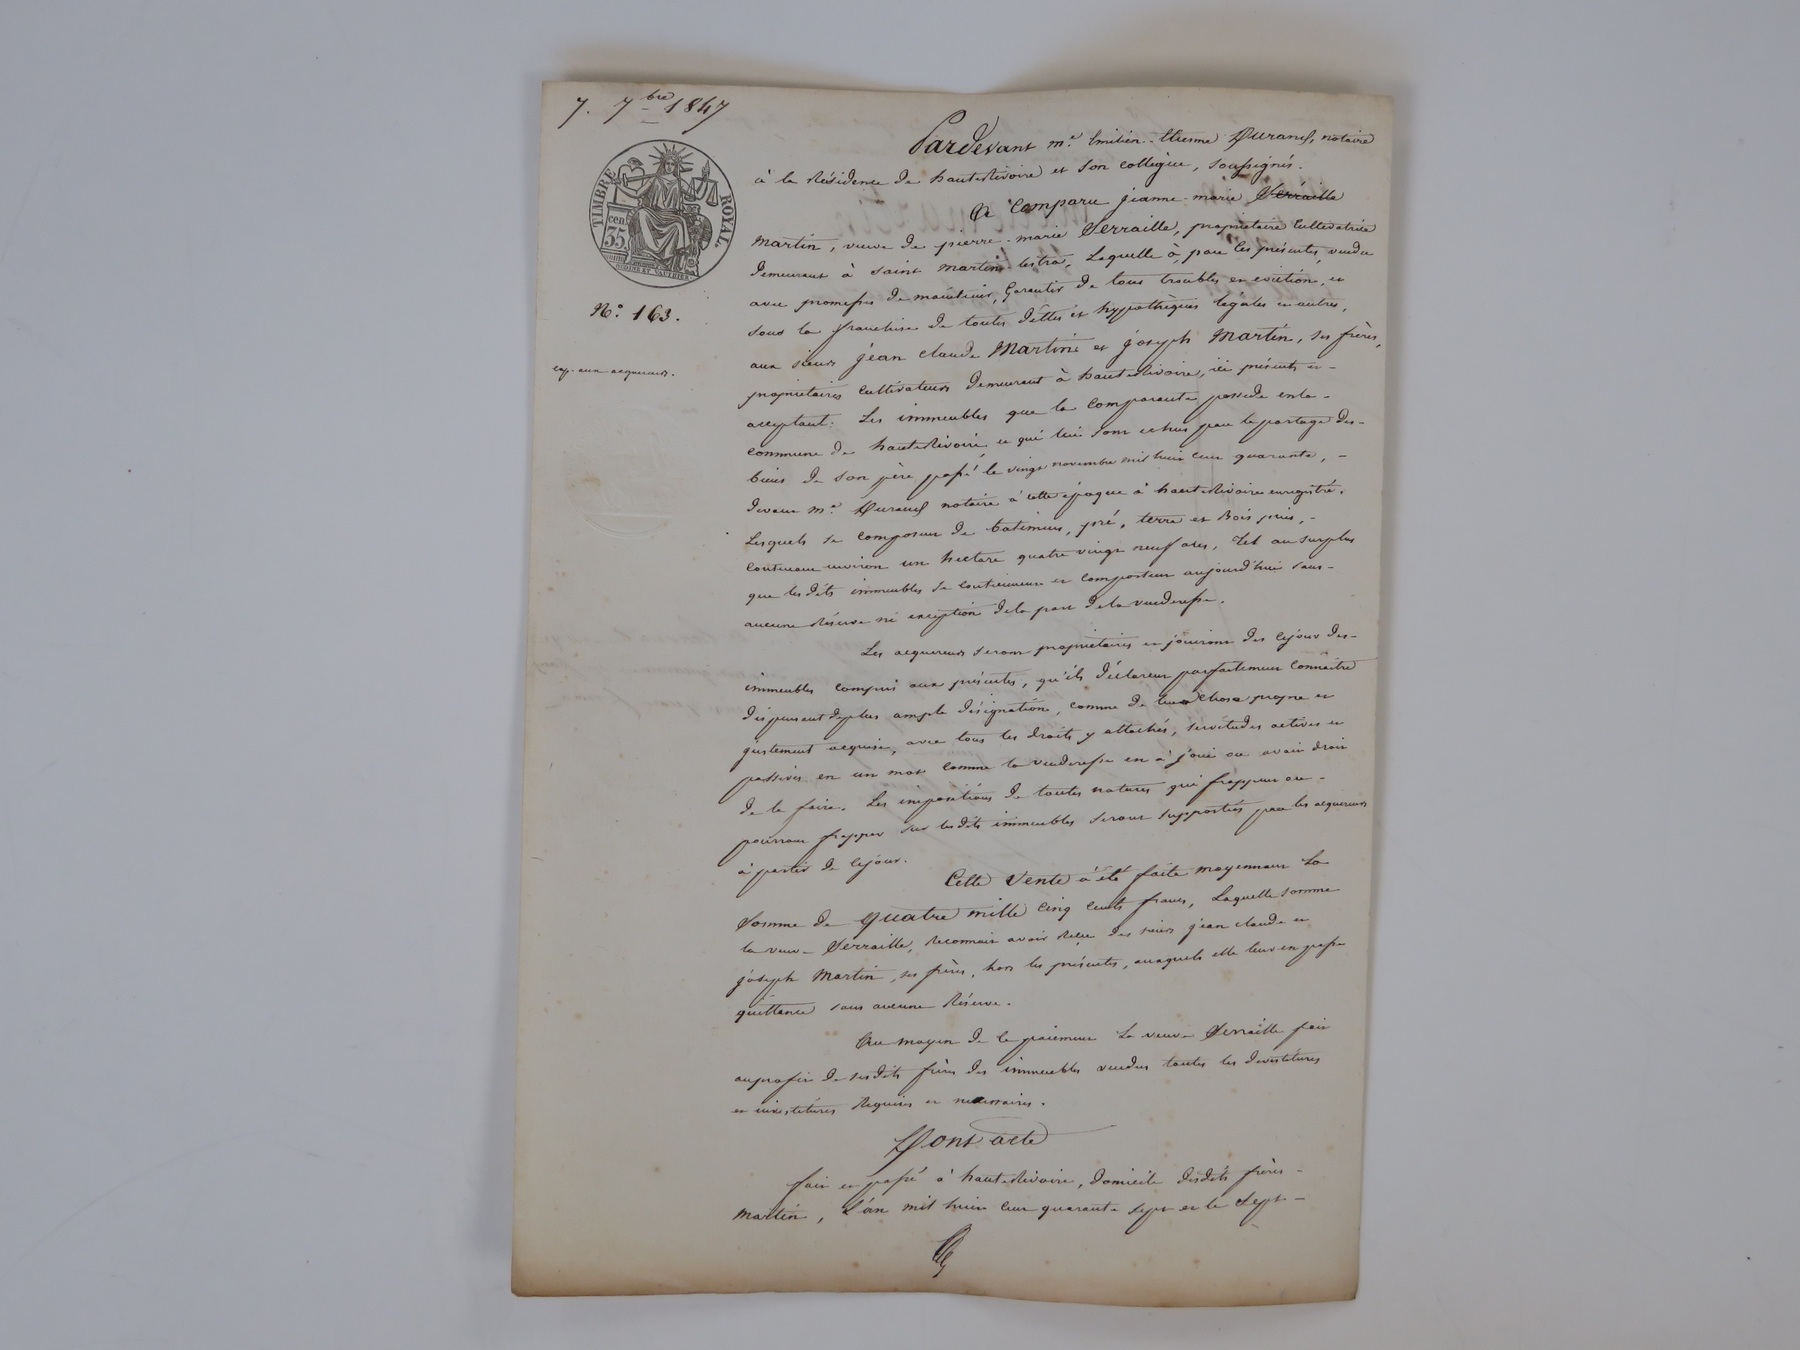 7. 7bre 1847
TIMBRE ROYAL.
35 cen.
No. 163.
exp. aux acquereurs.
Pardevant me. Emilien-Etienne Durand, notaire
à la Résidence de hauterivoire et son collègue, soussignés.
A Comparu jeanne-marie Serraille
Martin, veuve de pierre-marie Serraille, propriétaire Cultivatrice
demeurant à saint martin-lestra, Laquelle à, par les présentes, vendu
avec promesse de maintenir, Garantir de tous troubles en eviction, et
sous la franchise de toutes dettes et hypothèques légales et autres,
aux sieurs jean claude Martin et joseph Martin, ses frères,
propriétaires cultivateurs demeurant à hauterivoire, ici présents et-
acceptant: Les immeubles que la Comparante possède en la-
commune de hauterivoire et qui lui sont echus par le partage des-
biens de son père passé le vingt novembre mil huit cent quarante, -
devant me. Durand notaire à cette époque à hauterivoire enregistré.
Lesquels se composent de batimens, pré, terre et Bois pins, -
contenant environ un hectare quatre vingt neuf ares, tel au surplus
que lesdits immeubles se contiennent et comportent aujourd'hui sans-
aucune Réserve ni exception de la part de la venderesse.
Les acquereurs seront propriétaires et jouiront dès cejour des-
immeubles compris aux présentes, qu'ils déclarent parfaitement Connaitre
dispensant deplus ample désignation, comme de leur chose propre et
justement acquise, avec tous les droits y attachés, servitudes actives et
passives en un mot comme la venderesse en à joui ou avait droit
de le faire. Les impositions de toutes natures qui frappent ou-
pourront frapper sur lesdits immeubles seront supportées par les acquereurs
à partir de cejour.
Cette Vente à été faite moyennant La
Somme de quatre mille cinq cents francs, Laquelle somme
la veuve Serraille, Reconnait avoir Reçue des sieurs jean claude et
joseph Martin, ses frères, hors les présentes, auxquels elle leur en passe
quittance sans aucune Réserve.
Au moyen de ce paiement La veuve Serraille fait
au profit de ses dits frères des immeubles vendus toutes les devestitures
et investitures Requises et necessaires.
Dont acte
fait et passé à hauterivoire, domicile desdits frères-
Martin, L'an mil huit cent quarante sept et le Sept-